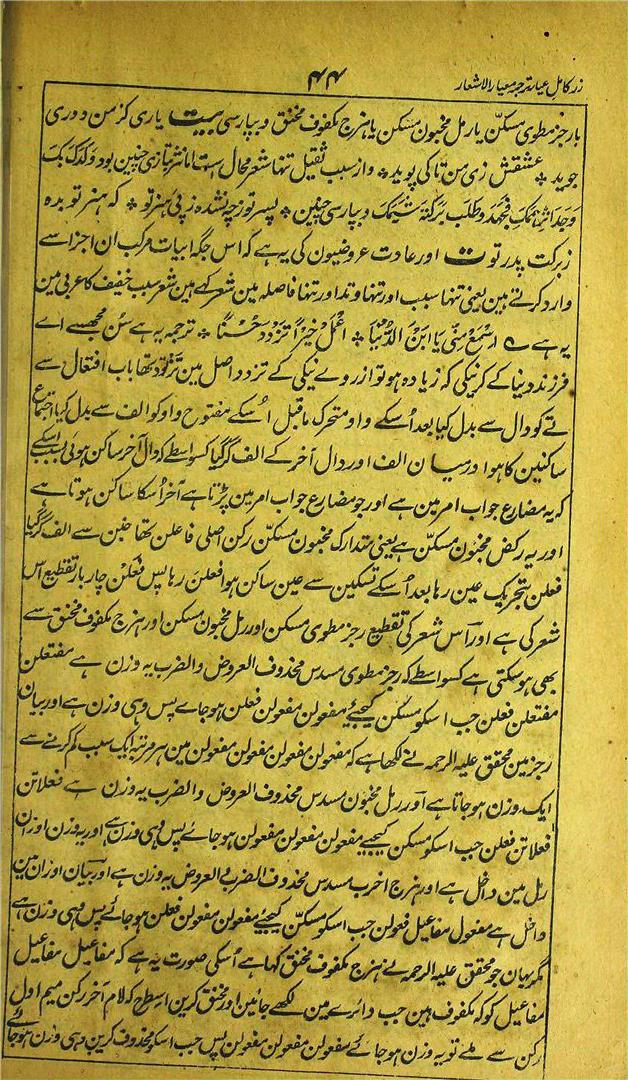 زر کامل عیار ترجمہ معیار الاشعار ۴۴
یا رجز مطوی مسکن یا رمل مخبون مسکن یا ہزج مکفوف مخنق و بپارسی بیت یاری کز من دوری
جوید * عشقش زی من تا کی پوید * و از سبب ثقیل تنہا شعر محال است اما نثر بتازی چنین بود
و طلب و بپارسی چنین * پسر تو ز چہ نشدہ ز پی ہنر تو * کہ ہنر تو بدہ
زبرکت پدر توت اور عادت عروضیون کی یہ ہے کہ اس جگہ ابیات مرکب ان اجزا سے
وارد کرتے ہین یعنی تنہا سبب اور تنہا وتد اور تنہا فاصلہ مین شعر کہے ہین شعر سبب خفیف کا عربی مین
یہ ہے ے اِسْمَعْ مِنِّی یَا ابْنَ الدُّنْیَا * اِعْمَلْ خَیْراً تَزْدَدْ حُسْناً * ترجمہ یہ ہے سُن مجھسے اے
فرزند دنیا کے کر نیکی کہ زیادہ ہو تو از روے نیکی کے تزدد اصل مین تزتود تھا باب افتعال سے
تے کو دال سے بدل کیا بعد اُسکے واو متحرک ماقبل اُسکے مفتوح واو کو الف سے بدل کیا اجتماع
ساکنین کا ہوا درمیان الف اور دال آخر کے الف گر گیا کسواسطے کہ دال آخر ساکن ہوئی بسبب اسکے
کہ یہ مضارع جواب امر مین ہے اور جو مضارع جواب امر مین پڑتا ہے آخر اُسکا ساکن ہوتا ہے
اور یہ رکض مخبون مسکن ہے یعنی متدارک مخبون مسکن رکن اصلی فاعلن تھا خبن سے الف گر گیا
فعلن بتحریک عین رہا بعد اُسکے تسکین سے عین ساکن ہوا فعلن رہا پس فعلن چار بار تقطیع اس
شعر کی ہے اور اس شعر کی تقطیع رجز مطوی مسکن اور رمل مخبون مسکن اور ہزج مکفوف مخنق سے
بھی ہو سکتی ہے کسواسطے کہ رجز مطوی مسدس محذوف العروض والضرب یہ وزن ہے مفتعلن
مفتعلن فعلن جب اسکو مسکن کیجیے مفعولن مفعولن فعلن ہو جاے پس وہی وزن ہے اور بیان
رجز مین محقق علیہ الرحمہ نے لکھا ہے کہ مفعولن مفعولن مفعولن مفعولن مین ہر مرتبہ ایک سبب کم کرنے سے
ایک وزن ہو جاتا ہے اور رمل مخبون مسدس محذوف العروض والضرب یہ وزن ہے فعلاتن
فعلاتن فعلن جب اسکو مسکن کیجیے مفعولن مفعولن مفعولن ہو جاے پس وہی وزن ہے اور یہ وزن اوزان
رمل مین داخل ہے اور ہزج اخرب مسدس محذوف الضرب والعروض یہ وزن ہے اور بیان اوزان مین
داخل ہے مفعول مفاعیل فعولن جب اسکو مسکن کیجیے مفعولن مفعولن فعلن ہو جاے پس وہی وزن ہے
مگر یہان جو محقق علیہ الرحمہ نے ہزج مکفوف مخنق کہا ہے اُسکی صورت یہ ہے کہ مفاعیل مفاعیل
مفاعیل کو کہ مکفوف ہین جب دائرے مین لکھے جائین اور مخنق کرین اسطرح کہ لام آخر رکن میم اول
رکن سے ملے تو یہ وزن ہو جائے مفعولن مفعولن مفعولن پس جب اسکو محذوف کرین وہی وزن ہو جائے